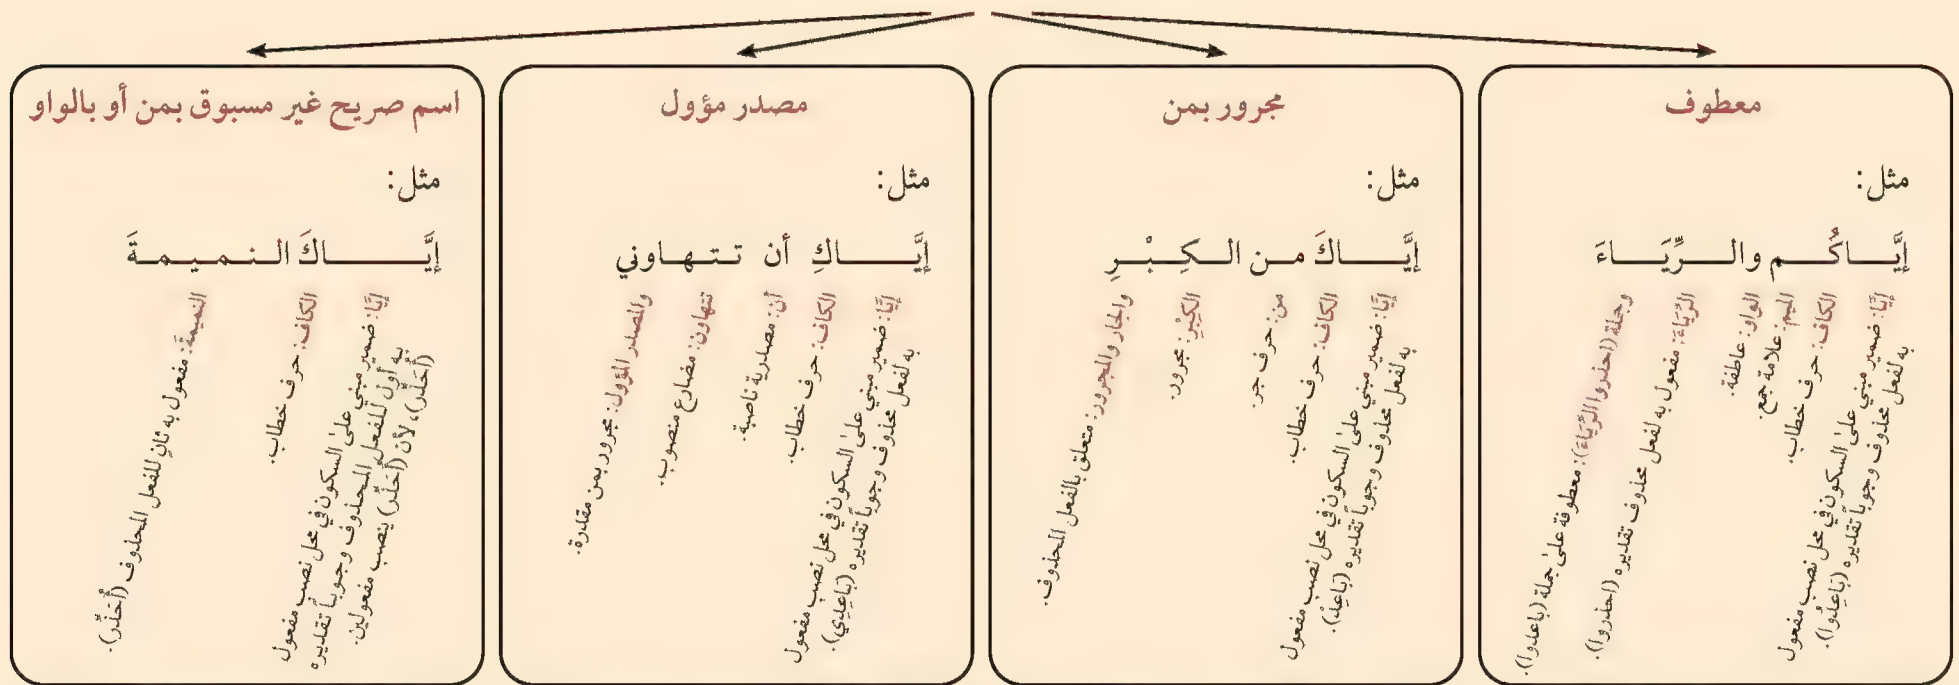 معطوف
مثل:
إِيَّـــاكُـــم والـــرِّيَـــاءَ
إيَّا: ضمير مبني على السكون في محل نصب مفعول
به لفعل محذوف وجوباً تقديره (بَاعِدُوا).
الكاف: حرف خطاب.
الميم: علامة جمع.
الواو: عاطفة.
الرِّيَاءَ: مفعول به لفعل محذوف تقديره (احذروا).
وجملة (احذروا الرِّيَاءَ): معطوفة على جملة (باعدوا).
مجرور بمن
مثل:
إيَّـــاكَ مـن الـكِـبْـرِ
إيَّا: ضمير مبني على السكون في محل نصب مفعول
به لفعل محذوف وجوباً تقديره (بَاعِدْ).
الكاف: حرف خطاب.
من: حرف جر.
الكِبْرِ: مجرور.
والجار والمجرور: متعلق بالفعل المحذوف.
مصدر مؤول
مثل:
إيَّـــاكِ أن تـتـهـاوني
إيَّا: ضمير مبني على السكون في محل نصب مفعول
به لفعل محذوف وجوباً تقديره (بَاعِدِي).
الكاف: حرف خطاب.
أن: مصدرية ناصبة.
تتهاون: مضارع منصوب.
والمصدر المؤول: مجرور بمن مقدرة.
اسم صريح غير مسبوق بمن أو بالواو
مثل:
إيَّـــاكَ الـنـمـيـمـةَ
إيَّا: ضمير مبني على السكون في محل نصب مفعول
به أول للفعل المحذوف وجوباً تقديره
(أُحَذِّر)، لأن (أُحَذِّر) ينصب مفعولين.
الكاف: حرف خطاب.
النميمةَ: مفعول به ثانٍ للفعل المحذوف (أُحَذِّر).